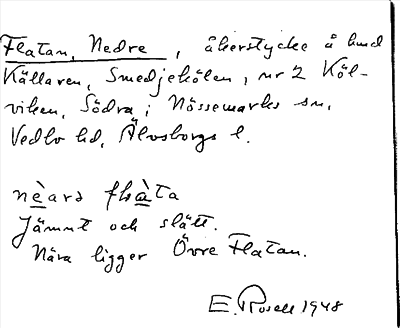 Flatan, Nedre, åkerstycke å hmd
Källaren, Smedjekölen, nr 2 Köl-
viken, Södra i Nössemarks sn,
Vedbo hd, Älvsborgs l.
nèard flàta
Jämnt och slätt.
Nära ligger Övre Flatan.
E. Rosell 1948